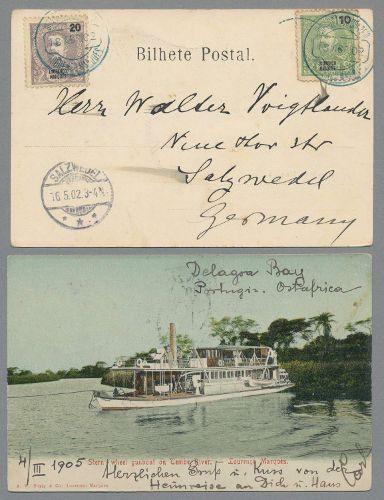 20
10
Bilhete Postal.
Herr Walter Voigtlander
Neue Hor str
Salzwedel
Germany
SALZWEDEL
16.5.02.3-4
Delagoa Bay
Portugis. Ostafrica
Stern wheel gunboat on Tembe River. — Lourenço Marques.
4/III 1905
Herzlichen Gruß u. Kuss von der
Heimreise an Dich u. Haus